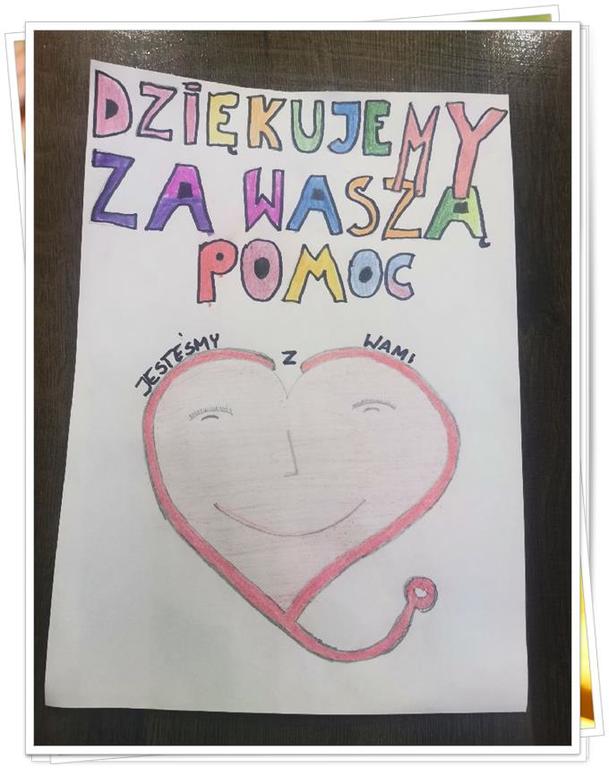 DZIĘKUJEMY
ZA WASZĄ
POMOC
JESTEŚMY Z WAMI